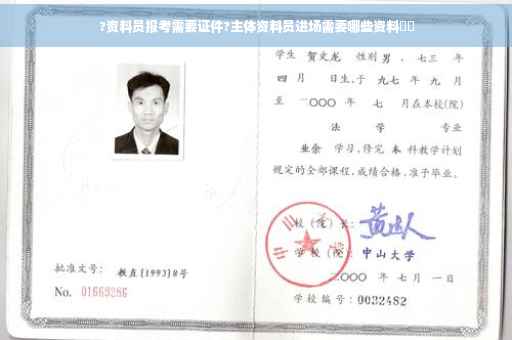 ?资料员报考需要证件?主体资料员进场需要哪些资料
学生 贺文龙 性别 男 、七三 年
四 月 日生,于 九七 年 九 月
至 二〇〇〇 年 七 月在本校(院)
法 学 专业
业余 学习,修完 本 科教学计划
规定的全部课程,成绩合格,准予毕业。
校(院)长:
学校(院): 中山大学
二〇〇〇 年 七月 一日
批准文号: 教直[1993]8号
No. 01669286
学校编号: 0032482